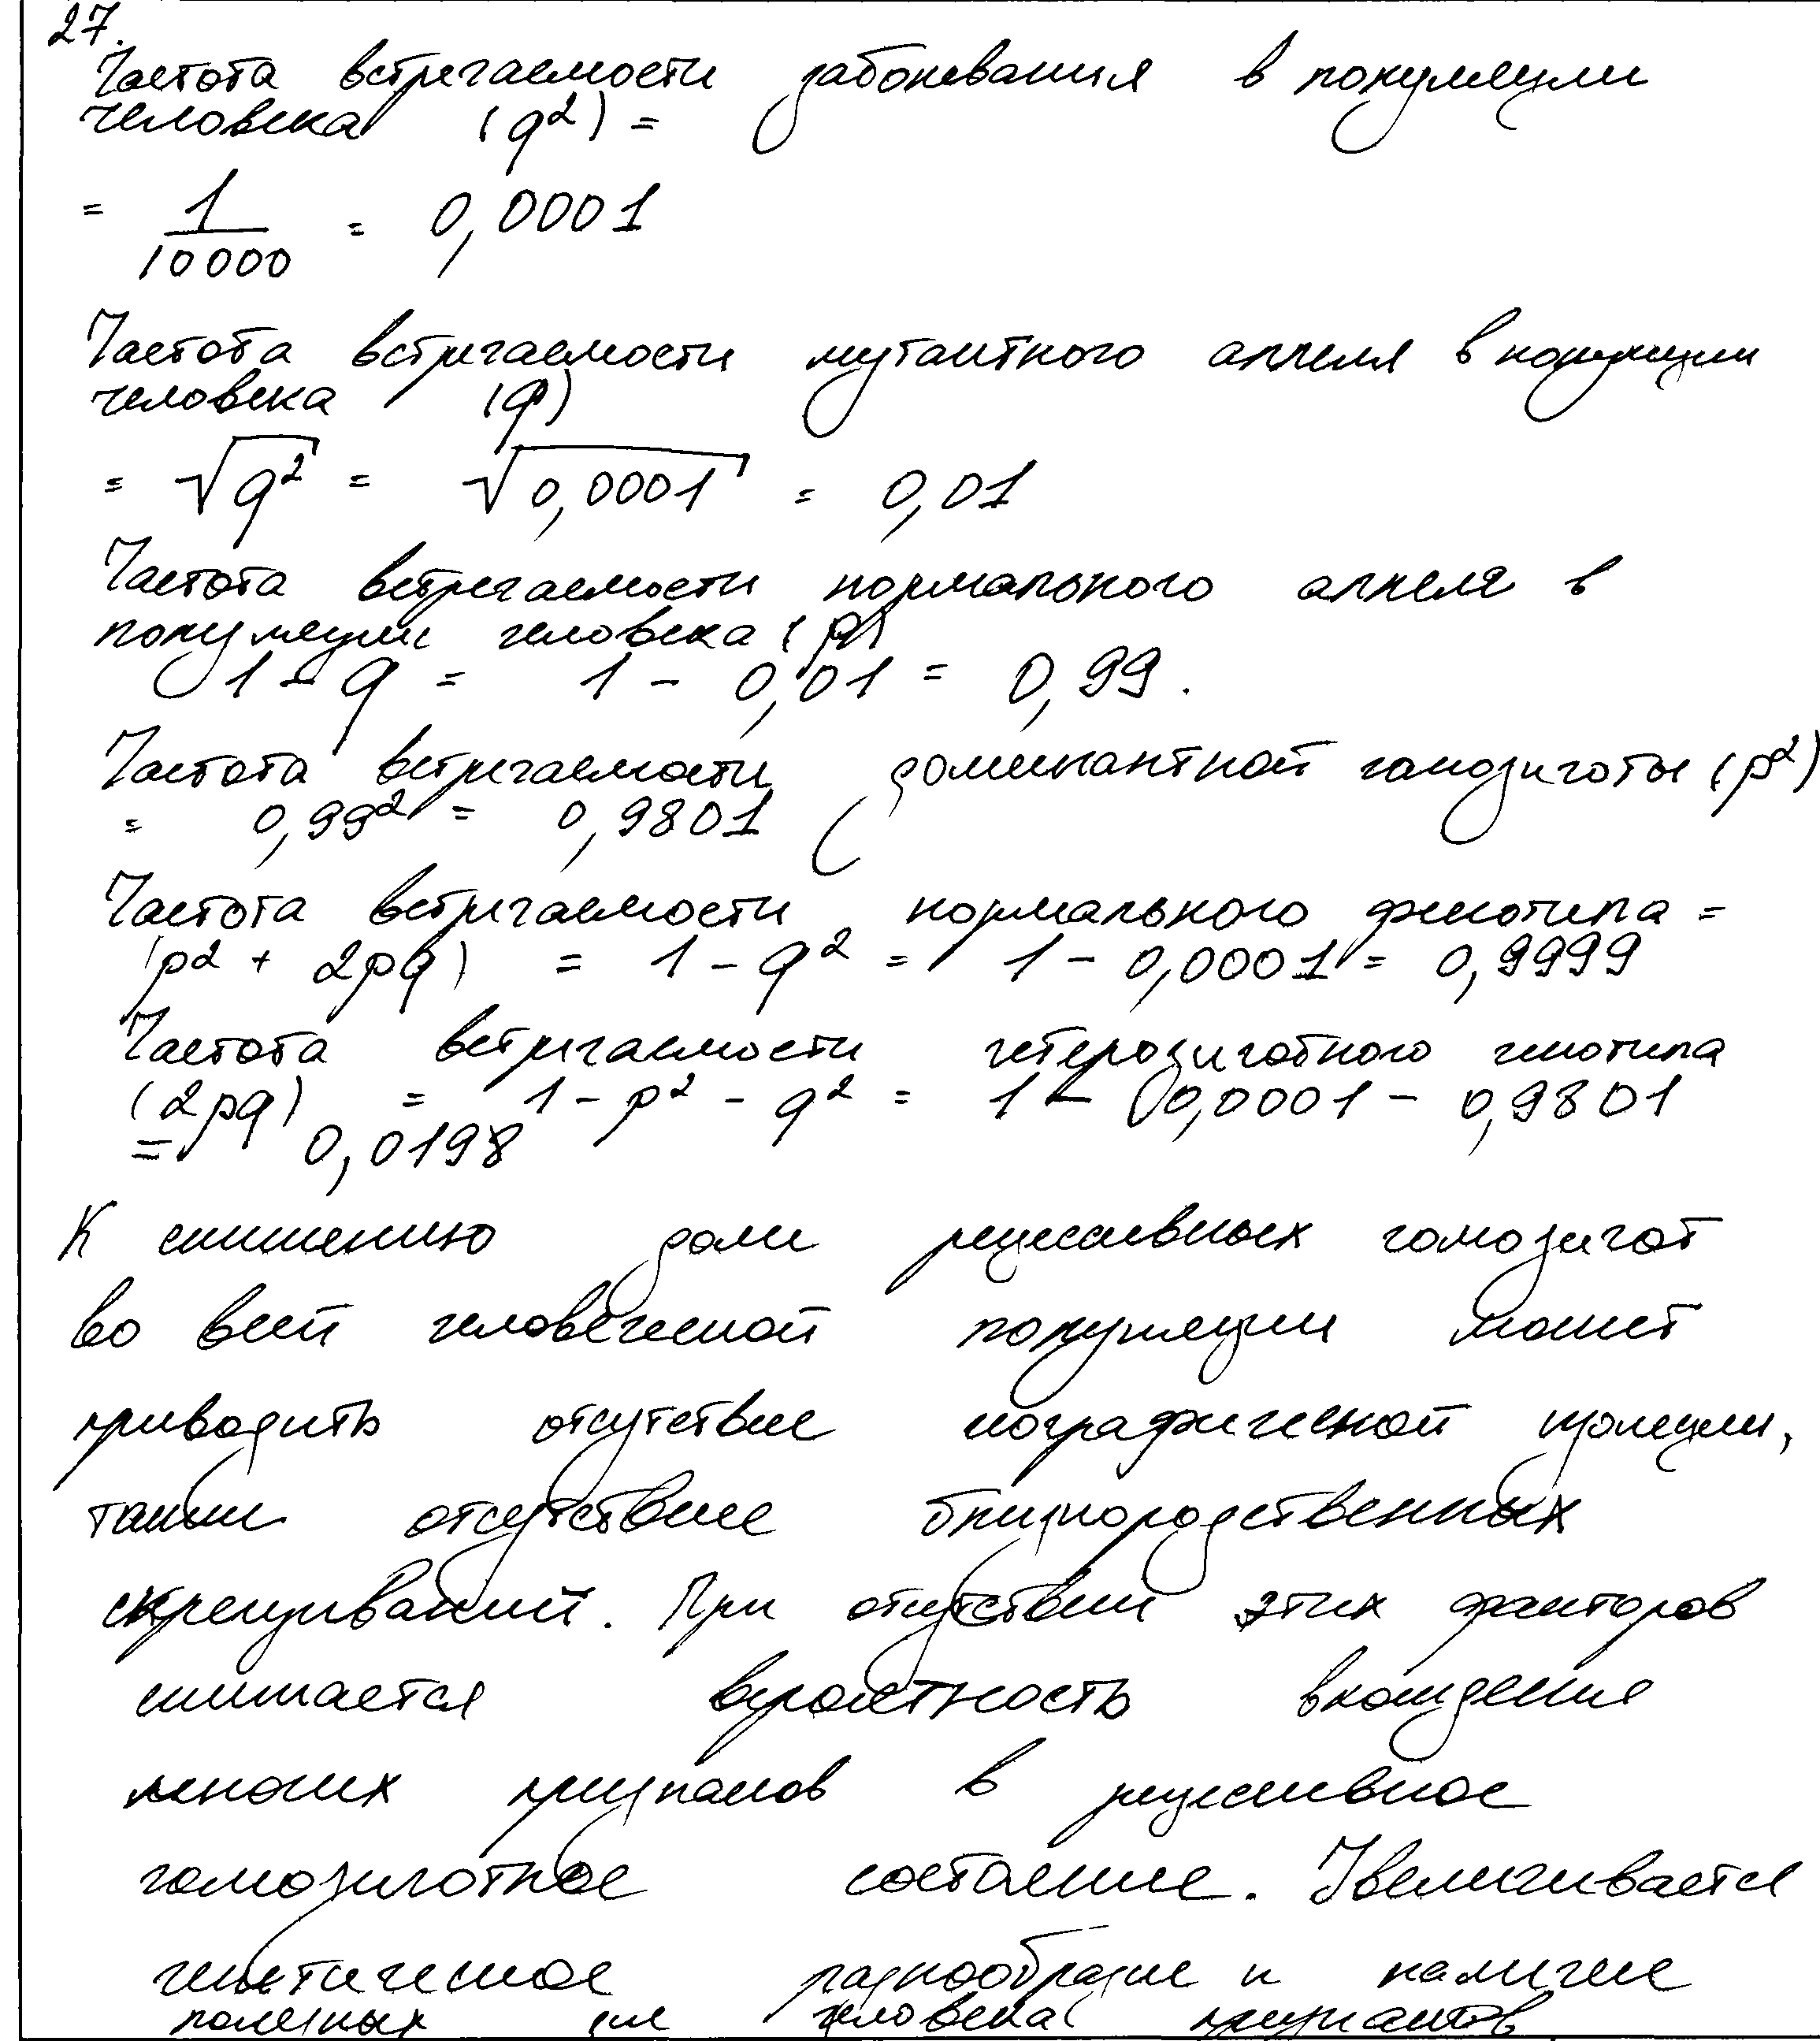 27.
Частота встречаемости заболевания в популяции
человека (q²) =
= 1/10000 = 0,0001
Частота встречаемости мутантного аллеля в популяции
человека (q)
= √q² = √0,0001 = 0,01
Частота встречаемости нормального аллеля в
популяции человека (p)
1 - q = 1 - 0,01 = 0,99.
Частота встречаемости доминантной гомозиготы (p²)
= 0,99² = 0,9801
Частота встречаемости нормального фенотипа =
(p² + 2pq) = 1 - q² = 1 - 0,0001 = 0,9999
Частота встречаемости гетерозиготного генотипа
(2pq) = 1 - p² - q² = 1 - 0,0001 - 0,9801
= 0,0198
К снижению доли рецессивных гомозигот
во всей человеческой популяции может
приводить отсутствие географической изоляции,
также отсутствие близкородственных
скрещиваний. При отсутствии этих факторов
снижается вероятность вхождения
многих признаков в рецессивное
гомозиготное состояние. Увеличивается
генетическое разнообразие и наличие
полезных для человека признаков